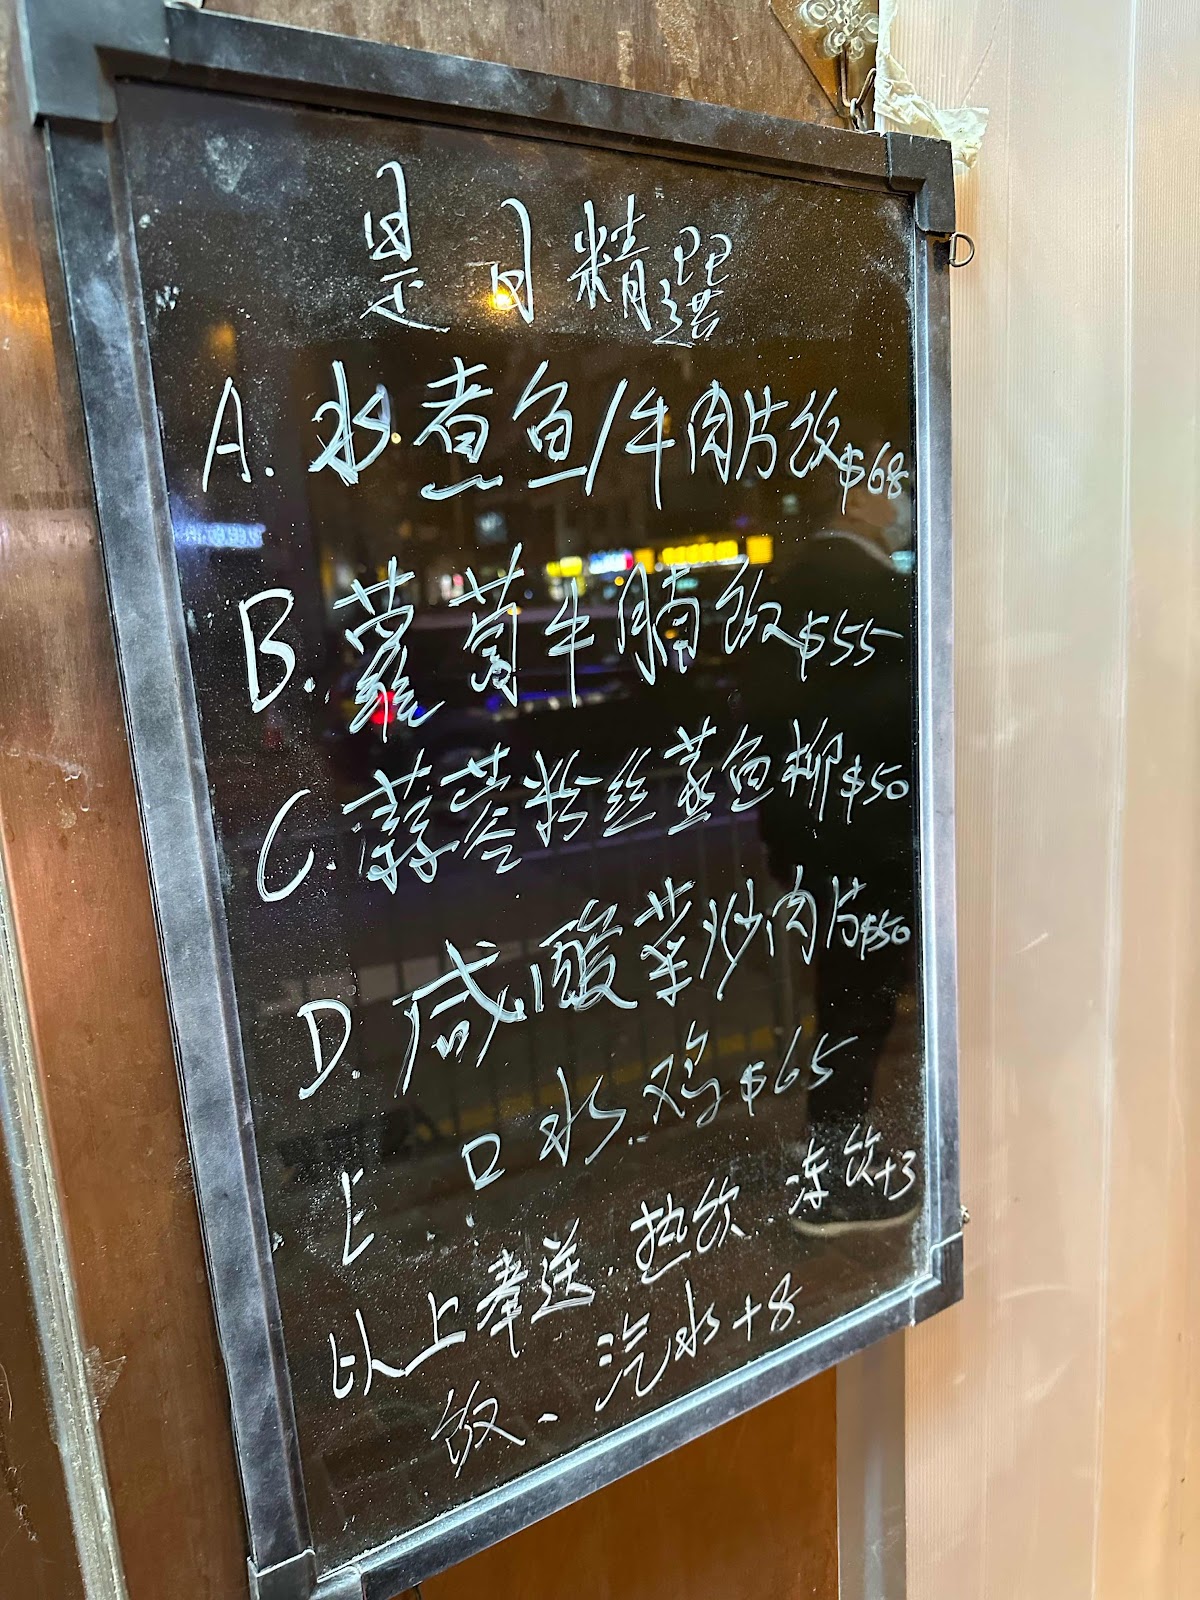 是日精選
A. 水煮魚/牛肉片饭$68
B. 蘿蔔牛腩饭$55
C. 蒜蓉粉丝蒸魚柳$50
D. 咸酸菜炒肉片$50
E 口水鸡$65
以上奉送.热饮.冻饮+3
饭、汽水+8